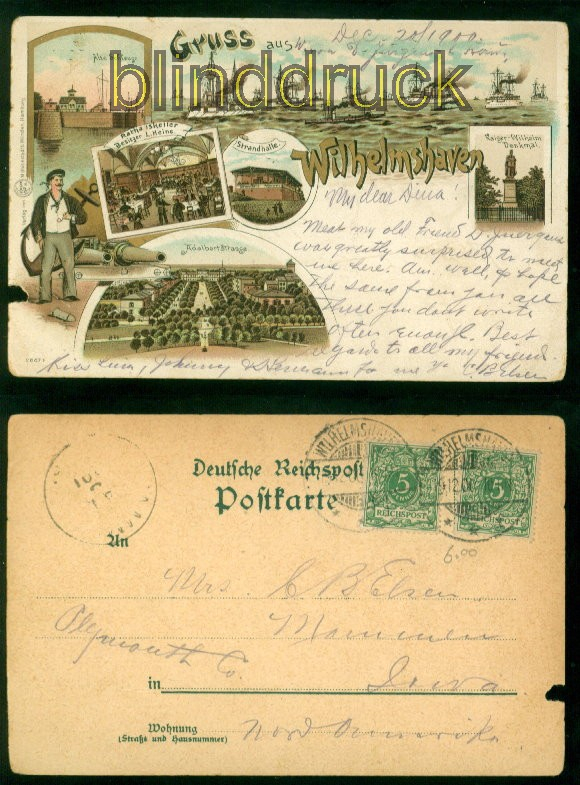 Gruss aus
Wilhelmshaven
blinddruck
Dec. 20/1900
Raths Keller
Besitzer L. Heine
Strandhalle
Kaiser-Wilhelm
Denkmal
Adalbertstrasse
My dear Dena.
Meet my old Friend D. Juergens
was greatly surprised to meet
me here. Am well, & hope
the same from you all
you dont write
often enough. Best
regards to all my friend.
Kiss Lena, Johnny & Hermann for me
Deutsche Reichspost
Postkarte
5
REICHSPOST
5
REICHSPOST
WILHELMSHAVEN
6.00
An
Mrs. C B Elsen
Mommen
Plymouth Co.
in Iowa
Wohnung
(Straße und Hausnummer)
Nord Amerika